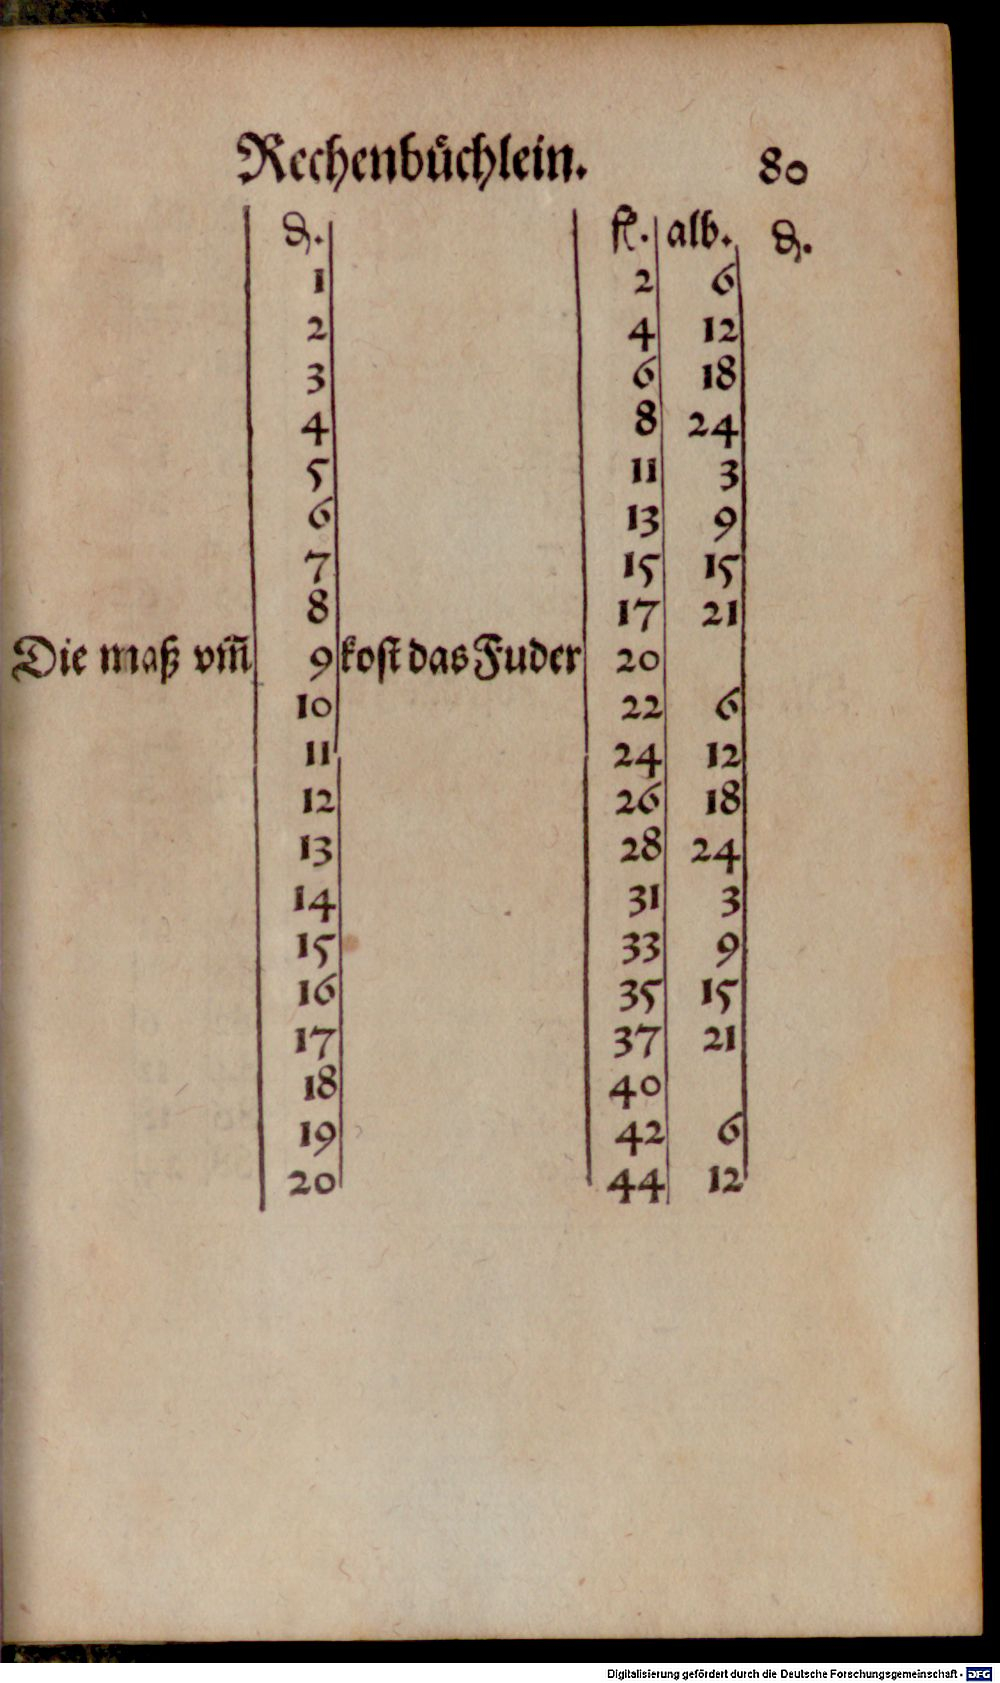 Rechenbüchlein. 80
₰. fl. alb. ₰.
1 2 6
2 4 12
3 6 18
4 8 24
5 11 3
6 13 9
7 15 15
8 17 21
Die maß vm̃ 9 kost das Fuder 20
10 22 6
11 24 12
12 26 18
13 28 24
14 31 3
15 33 9
16 35 15
17 37 21
18 40
19 42 6
20 44 12
Digitalisierung gefördert durch die Deutsche Forschungsgemeinschaft - DFG